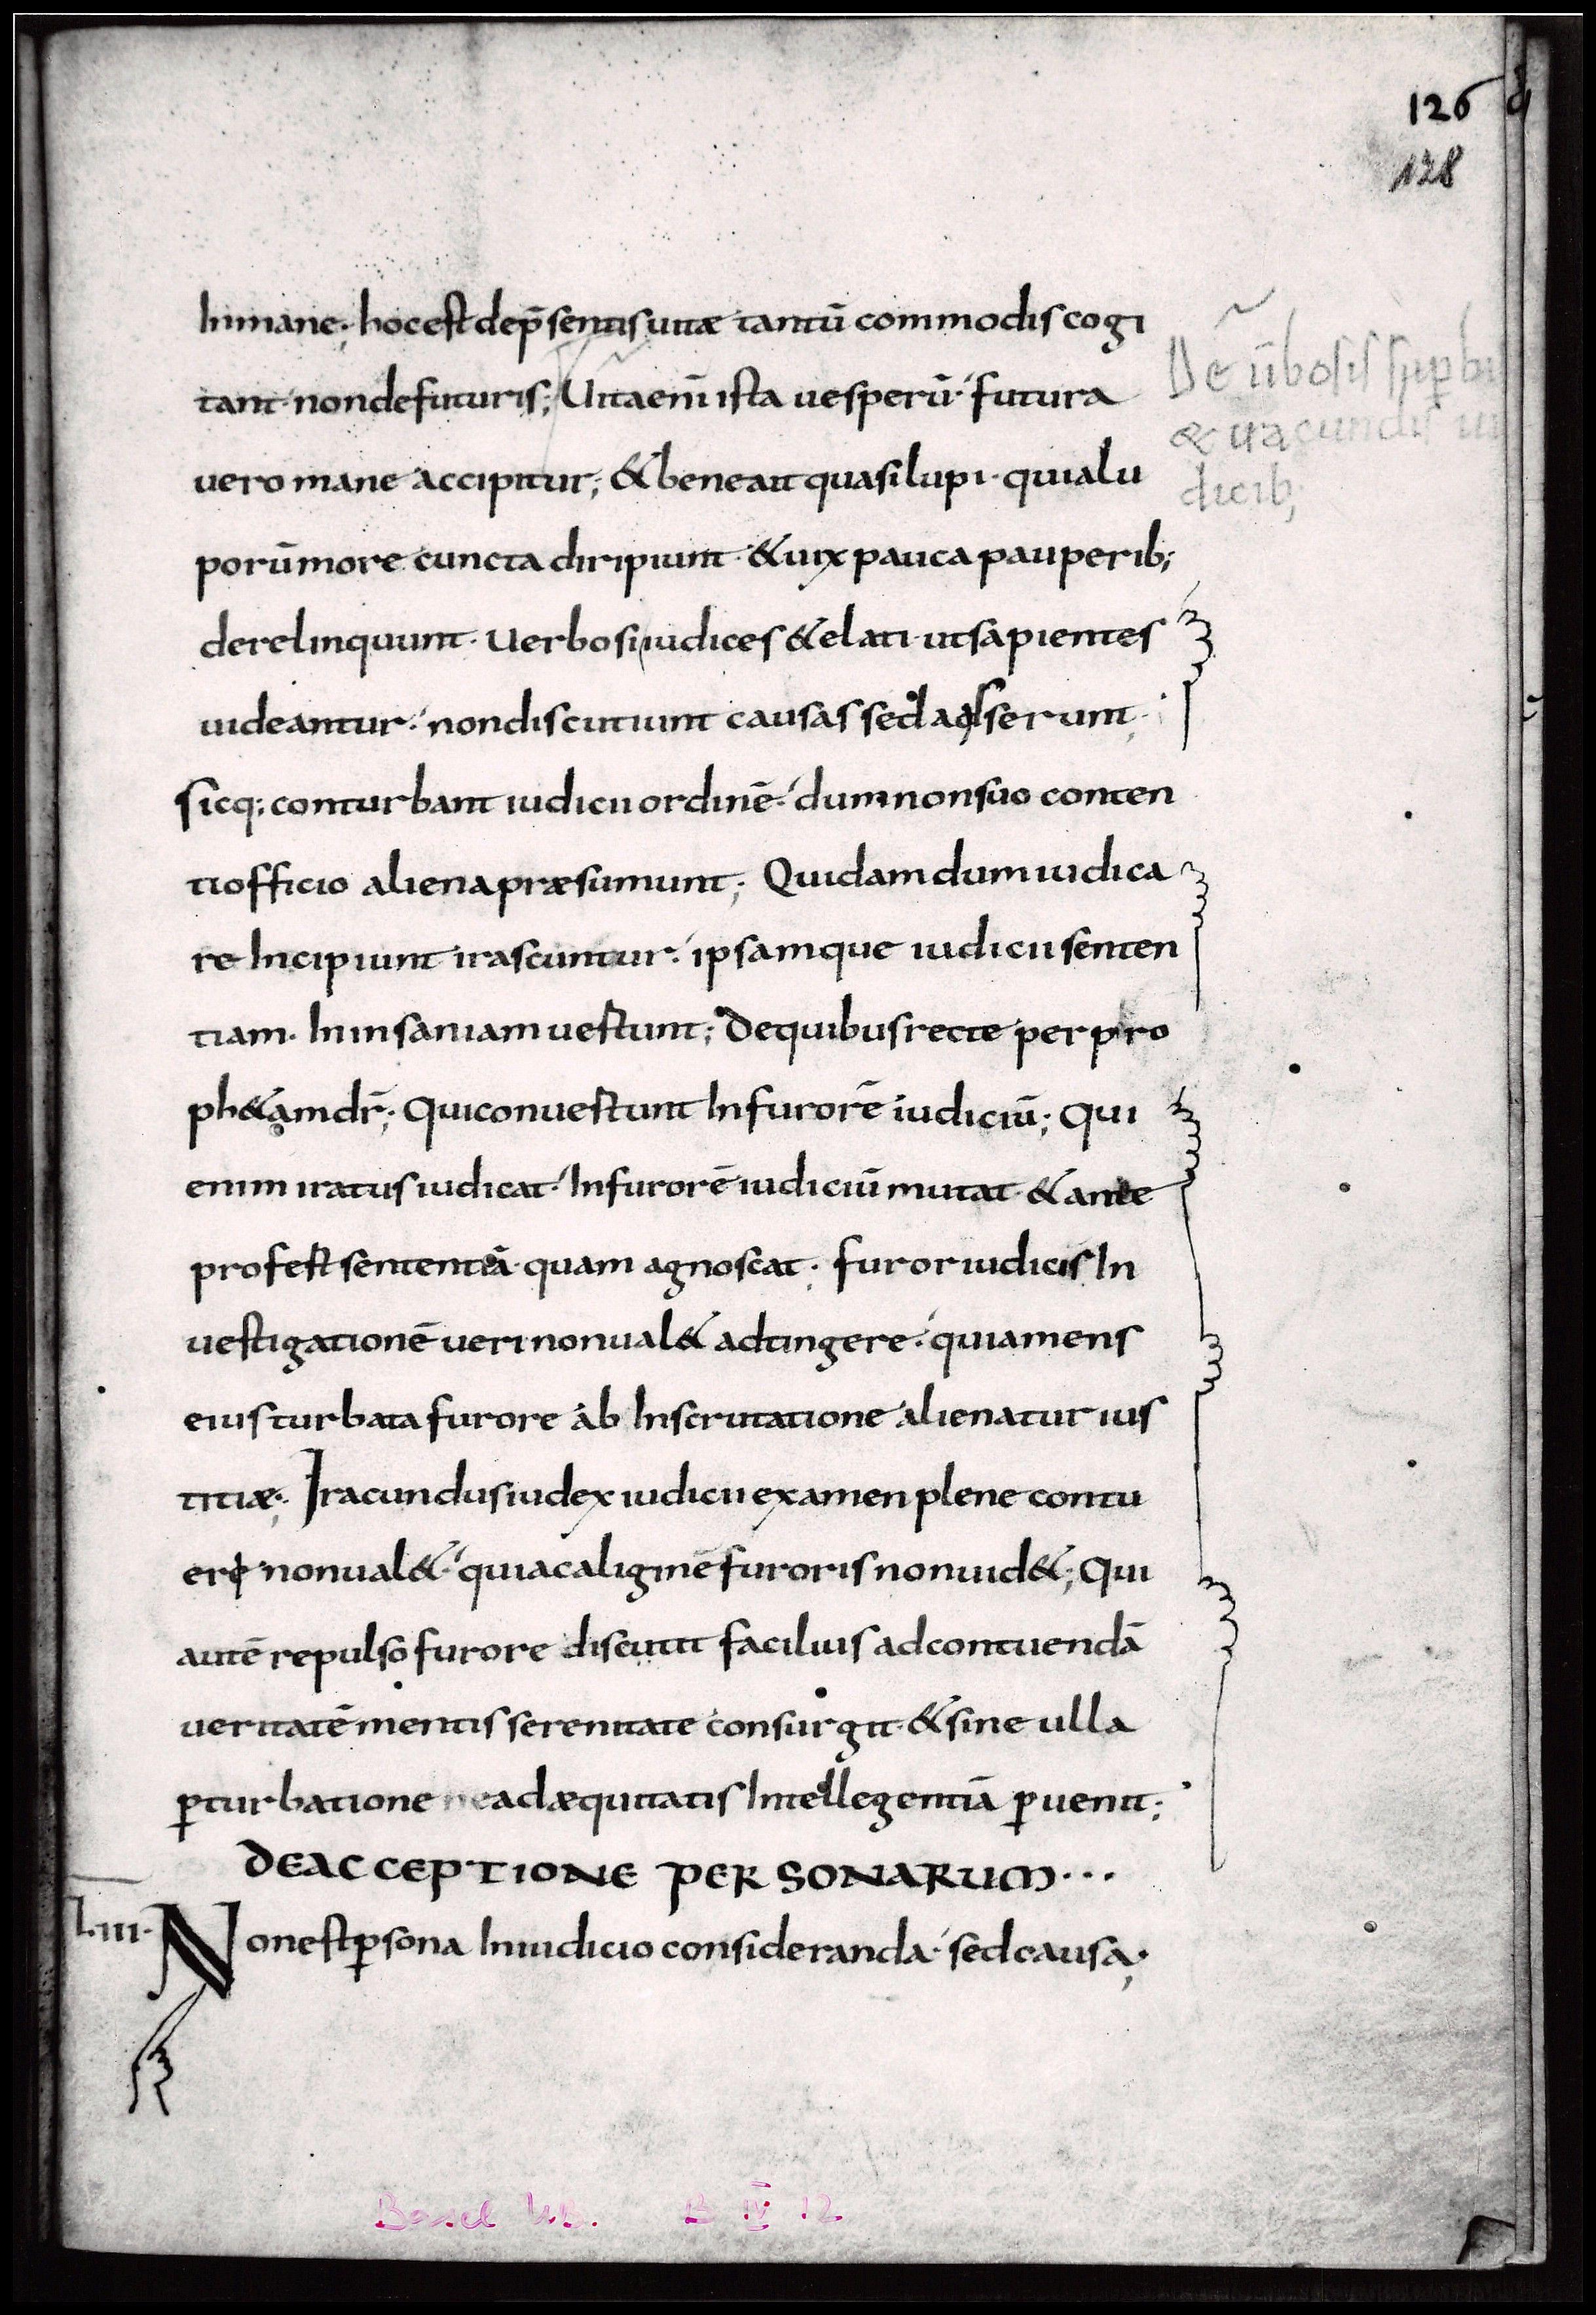 126
128
Inmane; hocest dep̄sentis uitæ tantū commodis cogi
tant· non defuturis; Uita enī ista uesperū· futura
uero mane accipitur; & bene ait quasi lupi· quia lu
porū more cuncta diripiunt· & uix pauca pauperib;
derelinquunt· Uerbosi iudices & elati ut sapientes
uideantur· non discutiunt causas sed adserunt;
sicq; conturbant iudicii ordinē· dum non suo conten
ti officio aliena præsumunt; Quidam dum iudica
re Incipiunt irascuntur· ipsamque iudicii senten
tiam· In insaniam uertunt; De quibus recte per pro
ph&am dr̄; Qui conuertunt In furorē iudiciū; Qui
enim iratus iudicat· In furorē iudiciū mutat· & ante
profert sententiā· quam agnoscat; furor iudicis In
uestigationē ueri non ual& adtingere· quia mens
eius turbata furore ab Inscrutatione alienatur ius
titiæ; Iracundus iudex iudicii examen plene contu
ere non ual&· quia caliginē furoris non uid&; Qui
autē repulso furore discutit facilius ad contuendā
ueritatē mentis serenitate consurgit· & sine ulla
ꝑturbatione ad æquitatis Intellegentiā ꝑuenit;
DE ACCEPTIONE PERSONARUM···
L·III· Non est ꝑsona In iudicio consideranda· sed causa;
De ūbosis suꝑbi
& iracundis iu
dicib;
Basel UB. B IV 12